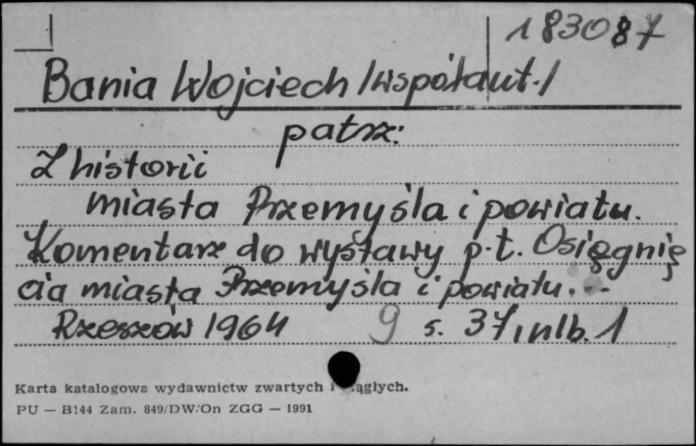 183087
Bania Wojciech /współaut./
patrz:
Z historii
miasta Przemyśla i powiatu.
Komentarz do wystawy p.t. Osięgnię
cia miasta Przemyśla i powiatu.
Rzeszów 1964 9 s. 37, nlb. 1
Karta katalogowa wydawnictw zwartych i ciągłych.
PU — B144 Zam. 849/DW/On ZGG — 1991